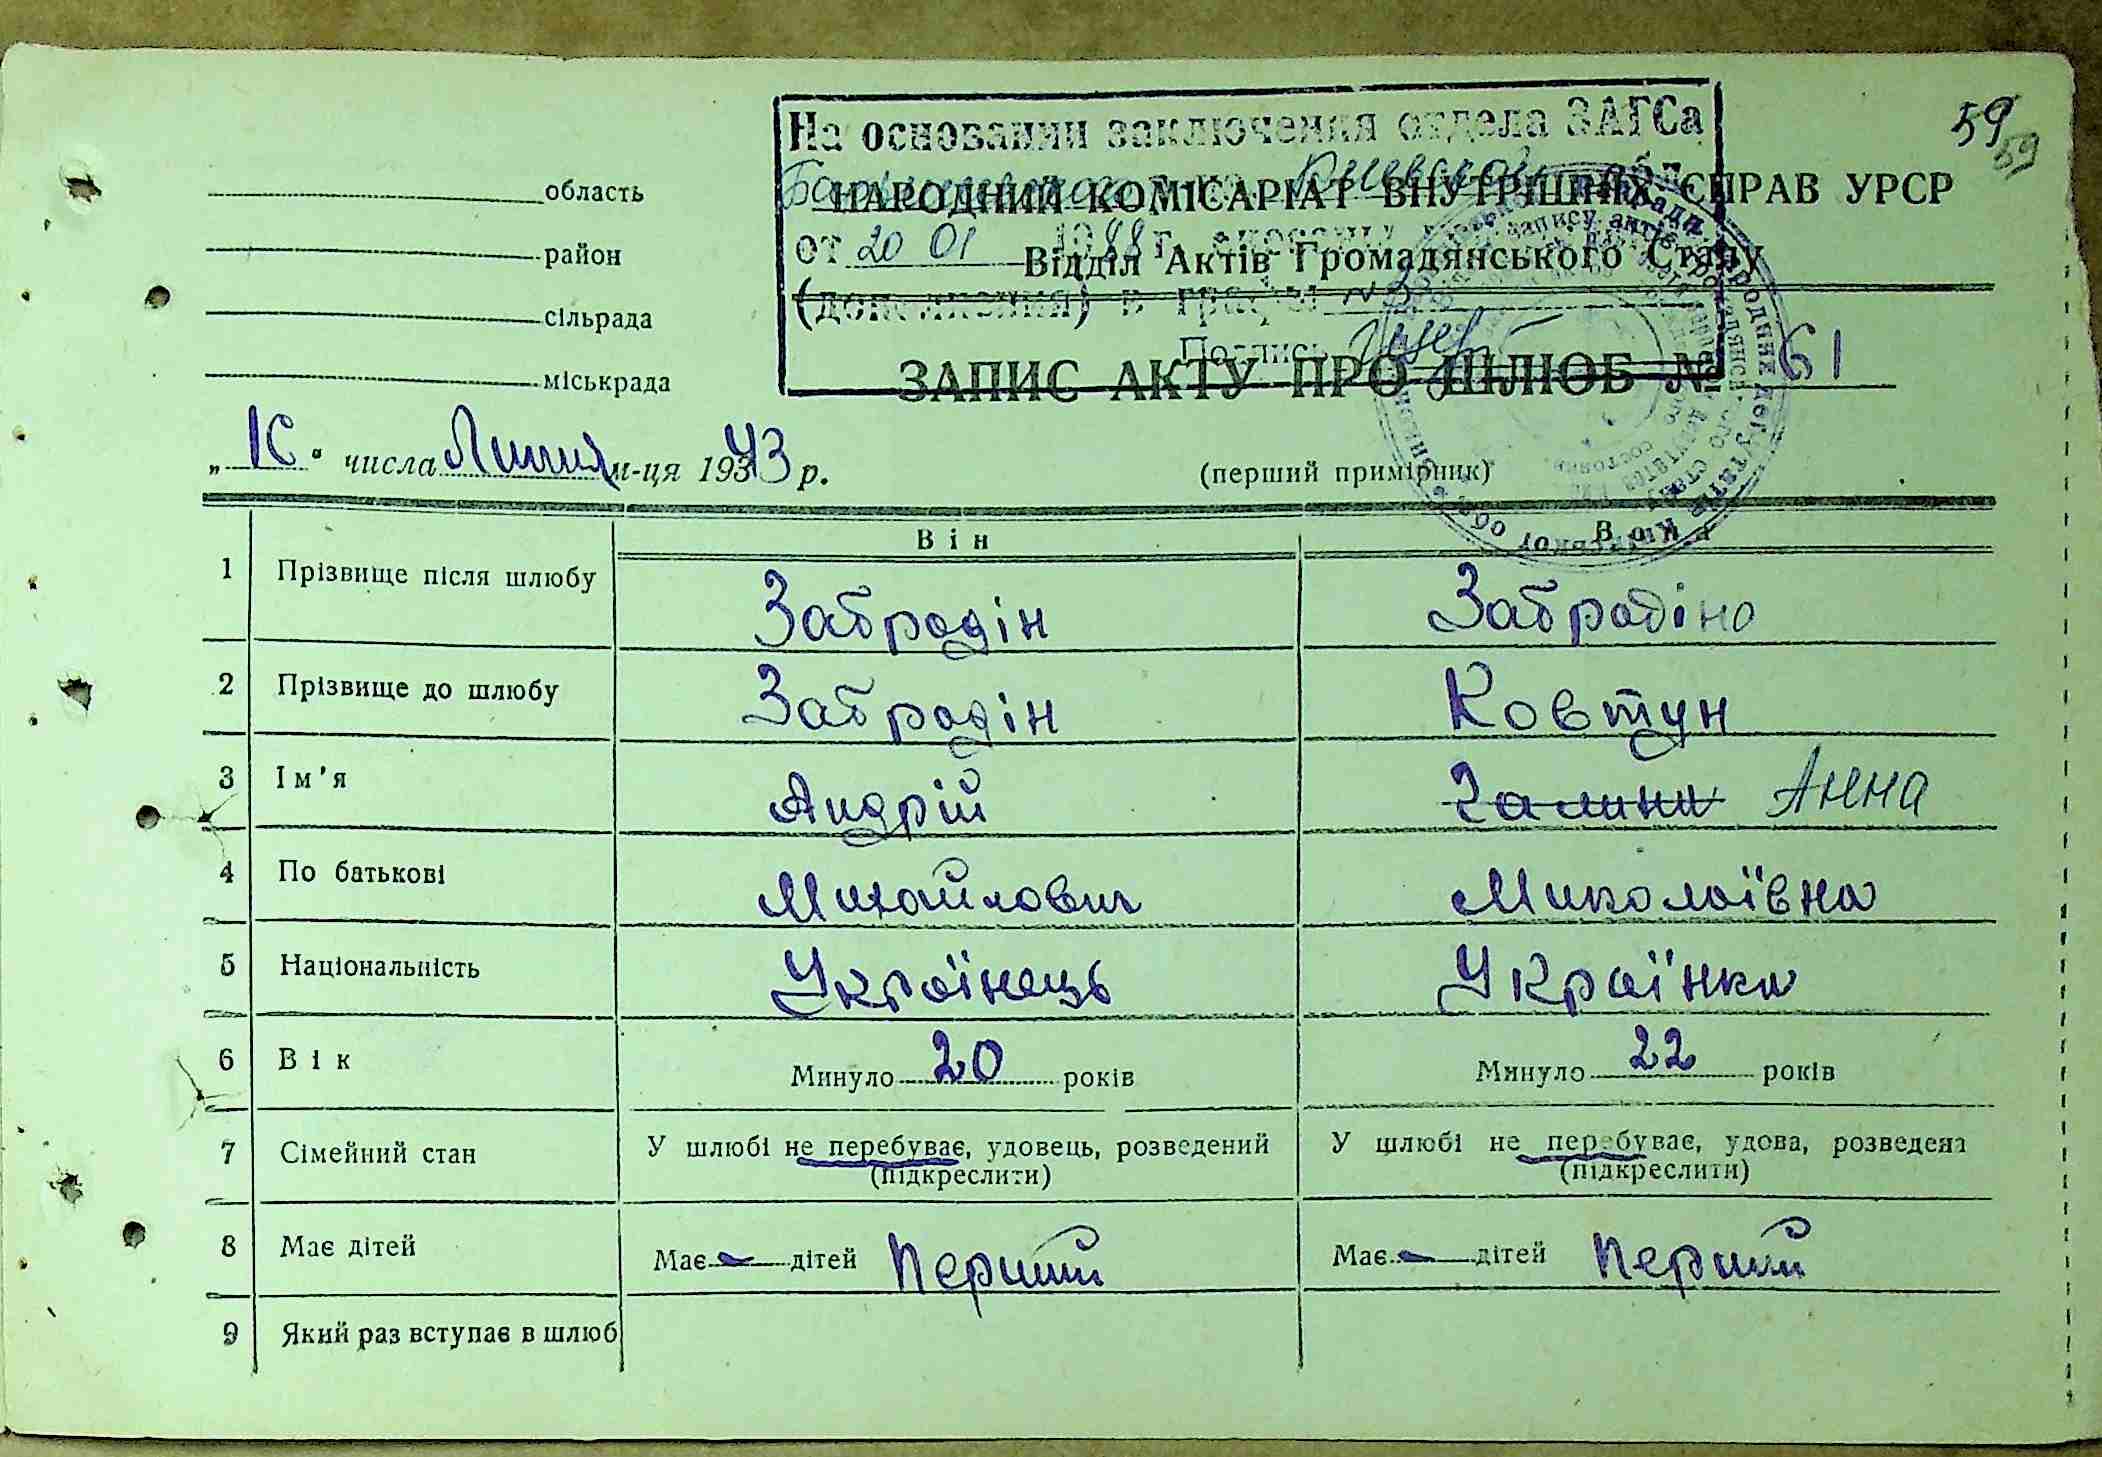 59
59
На основании заключения отдела ЗАГСа
область
НАРОДНИЙ КОМІСАРІАТ ВНУТРІШНІХ СПРАВ УРСР
от 20 01 1988 г.
район
Відділ Актів Громадянського Стану
(дополнения) в графы №3
сільрада
Подпись
ЗАПИС АКТУ ПРО ШЛЮБ № 61
міськрада
числа Липня м-ця 1943 р.
(перший примірник)
Він Вона
1 Прізвище після шлюбу Забродін Забродіна
2 Прізвище до шлюбу Забродін Ковтун
3 Ім'я Андрій Галина Анна
4 По батькові Михайлович Миколаївна
5 Національність Українець Українка
6 Вік Минуло 20 років Минуло 22 років
7 Сімейний стан У шлюбі не перебуває, удовець, розведений У шлюбі не перебуває, удова, розведена
(підкреслити) (підкреслити)
8 Має дітей Має - дітей Перший Має - дітей Перший
9 Який раз вступає в шлюб